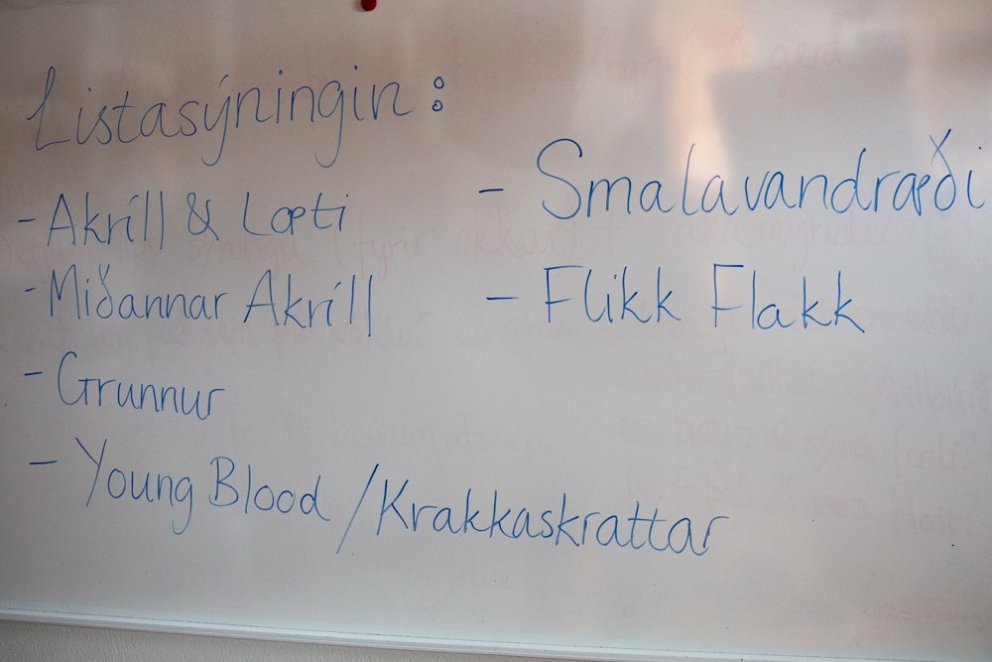 Listasýningin:
- Akríll & Læti
- Miðannar Akríll
- Grunnur
- Young Blood / Krakkaskrattar
- Smalavandræði
- Flikk Flakk